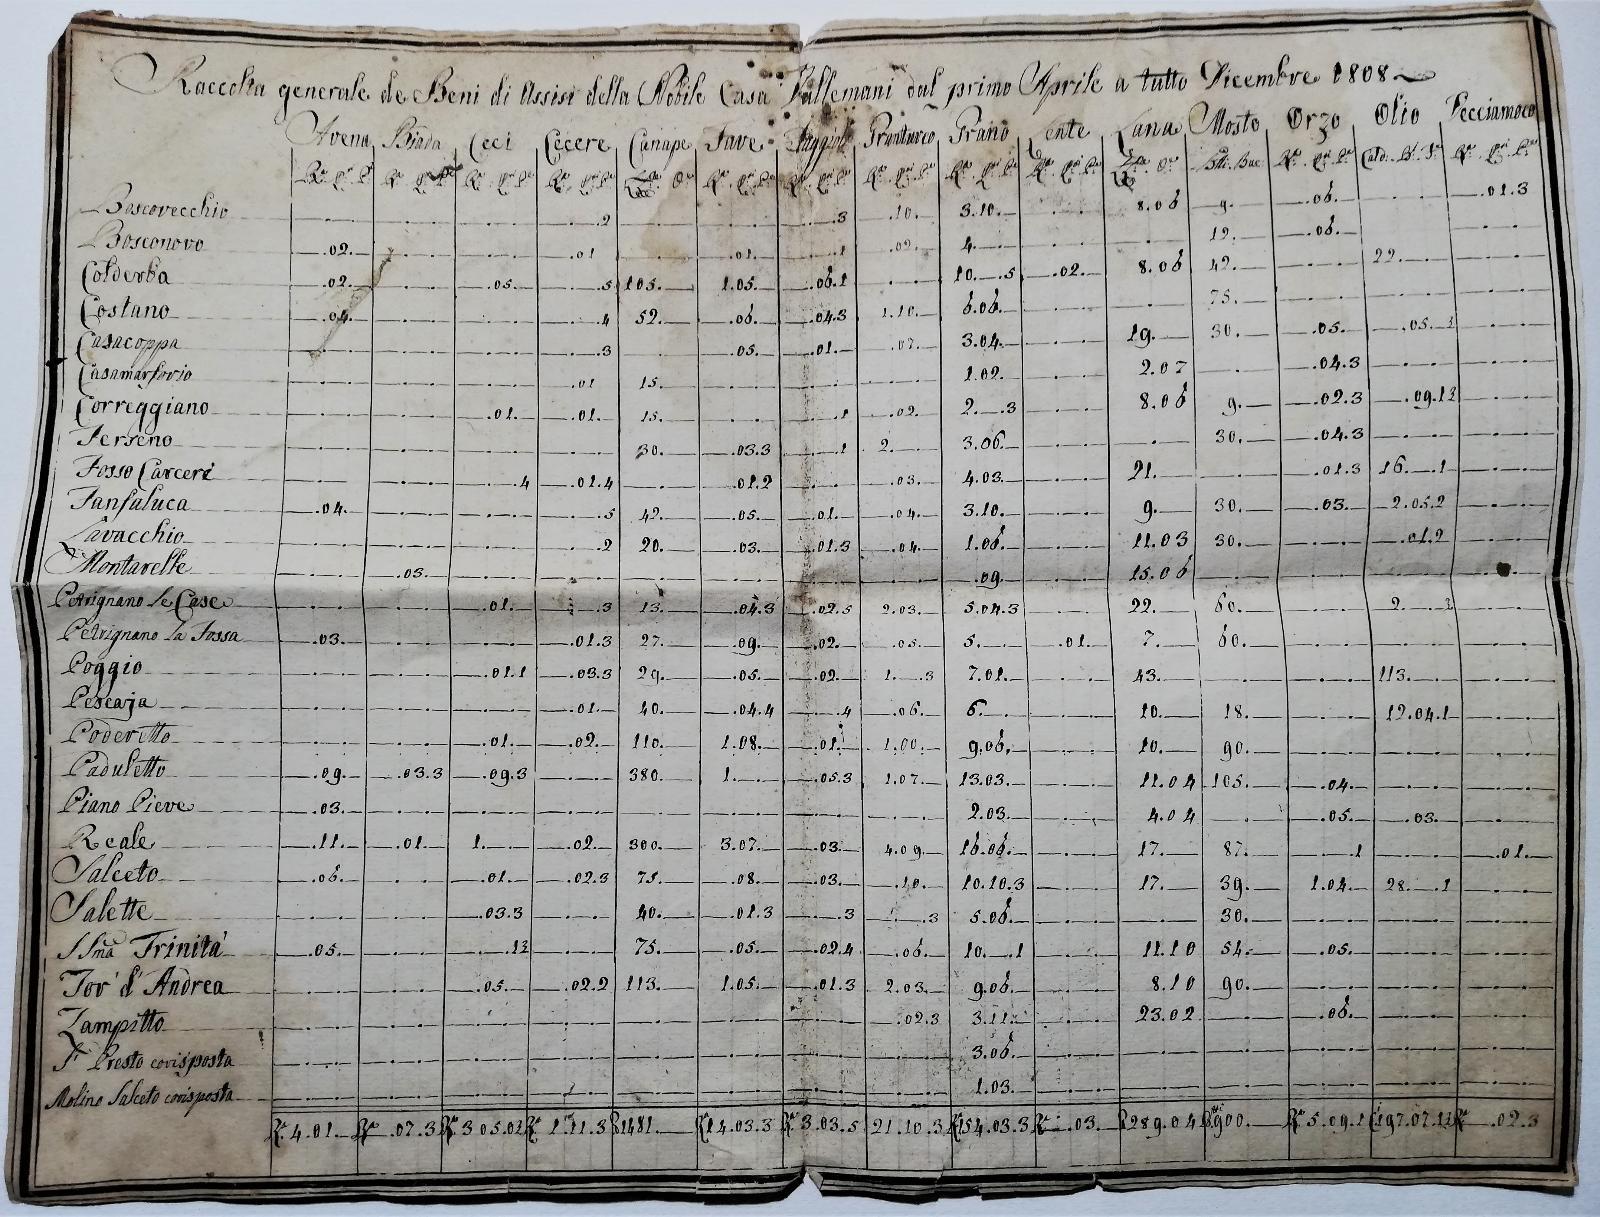 Raccolta generale de Beni di Assisi della Nobile Casa Vallemani dal primo Aprile a tutto Dicembre 1808
Avena Biada Ceci Cecere Canape Fave Faggioli Granturco Grano Lente Lana Mosto Orzo Olio Vecciamoco
Boscovecchio .2 .3 .10. 3.10. 8.06 9. .06. .01.3
Bosconovo .02. .01 .01. .1 .02. 4. 12. .06.
Colderba .02. .05. .5 105. 1.05. .06.1 10. .5 .02. 8.06 42. 22.
Costano .04. .4 52. .06. .04.3 1.10. 6.06. 75.
Casacoppa .3 .05. .01. .07. 3.04. 19. 30. .05. .05.
Casamarforio .01 15. 1.02. 2.07 .04.3
Correggiano .01. .01. 15. .1 .02. 2. .3 8.06 9. .02.3
Ferseno 30. .03.3 .1 2. 3.06. 30. .04.3
Fosso Carceri .4 .01.4 .01.2 .03. 4.03. 21. .01.3 16. .1
Fanfaluca .04. .5 42. .05. .01. .04. 3.10. 9. 30. .03. 2.05.2
Lavacchio .2 20. .03. .01.3 .04. 1.06. 11.03 30. .01.2
Montarelle .03. .09. 15.06
Petrignano le Case .01. .3 13. .04.3 .02.5 2.03. 5.04.3 22. 60. 2.
Petrignano la Fossa .03. .01.3 27. .09. .02. .05. 5. .01. 7. 60.
Poggio .01.1 .03.3 29. .05. .02. 1. .3 7.01. 43. 113.
Pescaja .01. 40. .04.4 .4 .06. 6. 10. 18. 12.04.1
Poderetto .01. .02. 110. 1.08. .01. 1.00. 9.06. 10. 90.
Paduletto .09. .03.3 .09.3 380. 1. .05.3 1.07. 13.03. 11.04 105. .04.
Piano Pieve .03. 2.03. 4.04 .05. .03.
Reale .11. .01. 1. .02. 300. 3.07. .03. 4.09. 16.06. 17. 87. .1 .01.
Salceto .06. .01. .02.3 75. .08. .03. .10. 10.10.3 17. 39. 1.04. 28. .1
Salette .03.3 40. .01.3 .3 .3 5.06. 30.
SSma Trinità .05. 75. .05. .02.4 .06. 10. .1 11.10 54. .05.
Tor d' Andrea .05. .02.2 113. 1.05. .01.3 2.03. 9.06. 8.10 90.
Zampitto .02.3 3.11. 23.02 .06.
Presto corisposta 3.06.
Molino Salceto corisposta 1.03.
4.01. .07.3 1.11.3 1481. 14.03.3 3.03.5 21.10.3 154.03.3 .03. 289.04 900. 5.09.1 .02.3